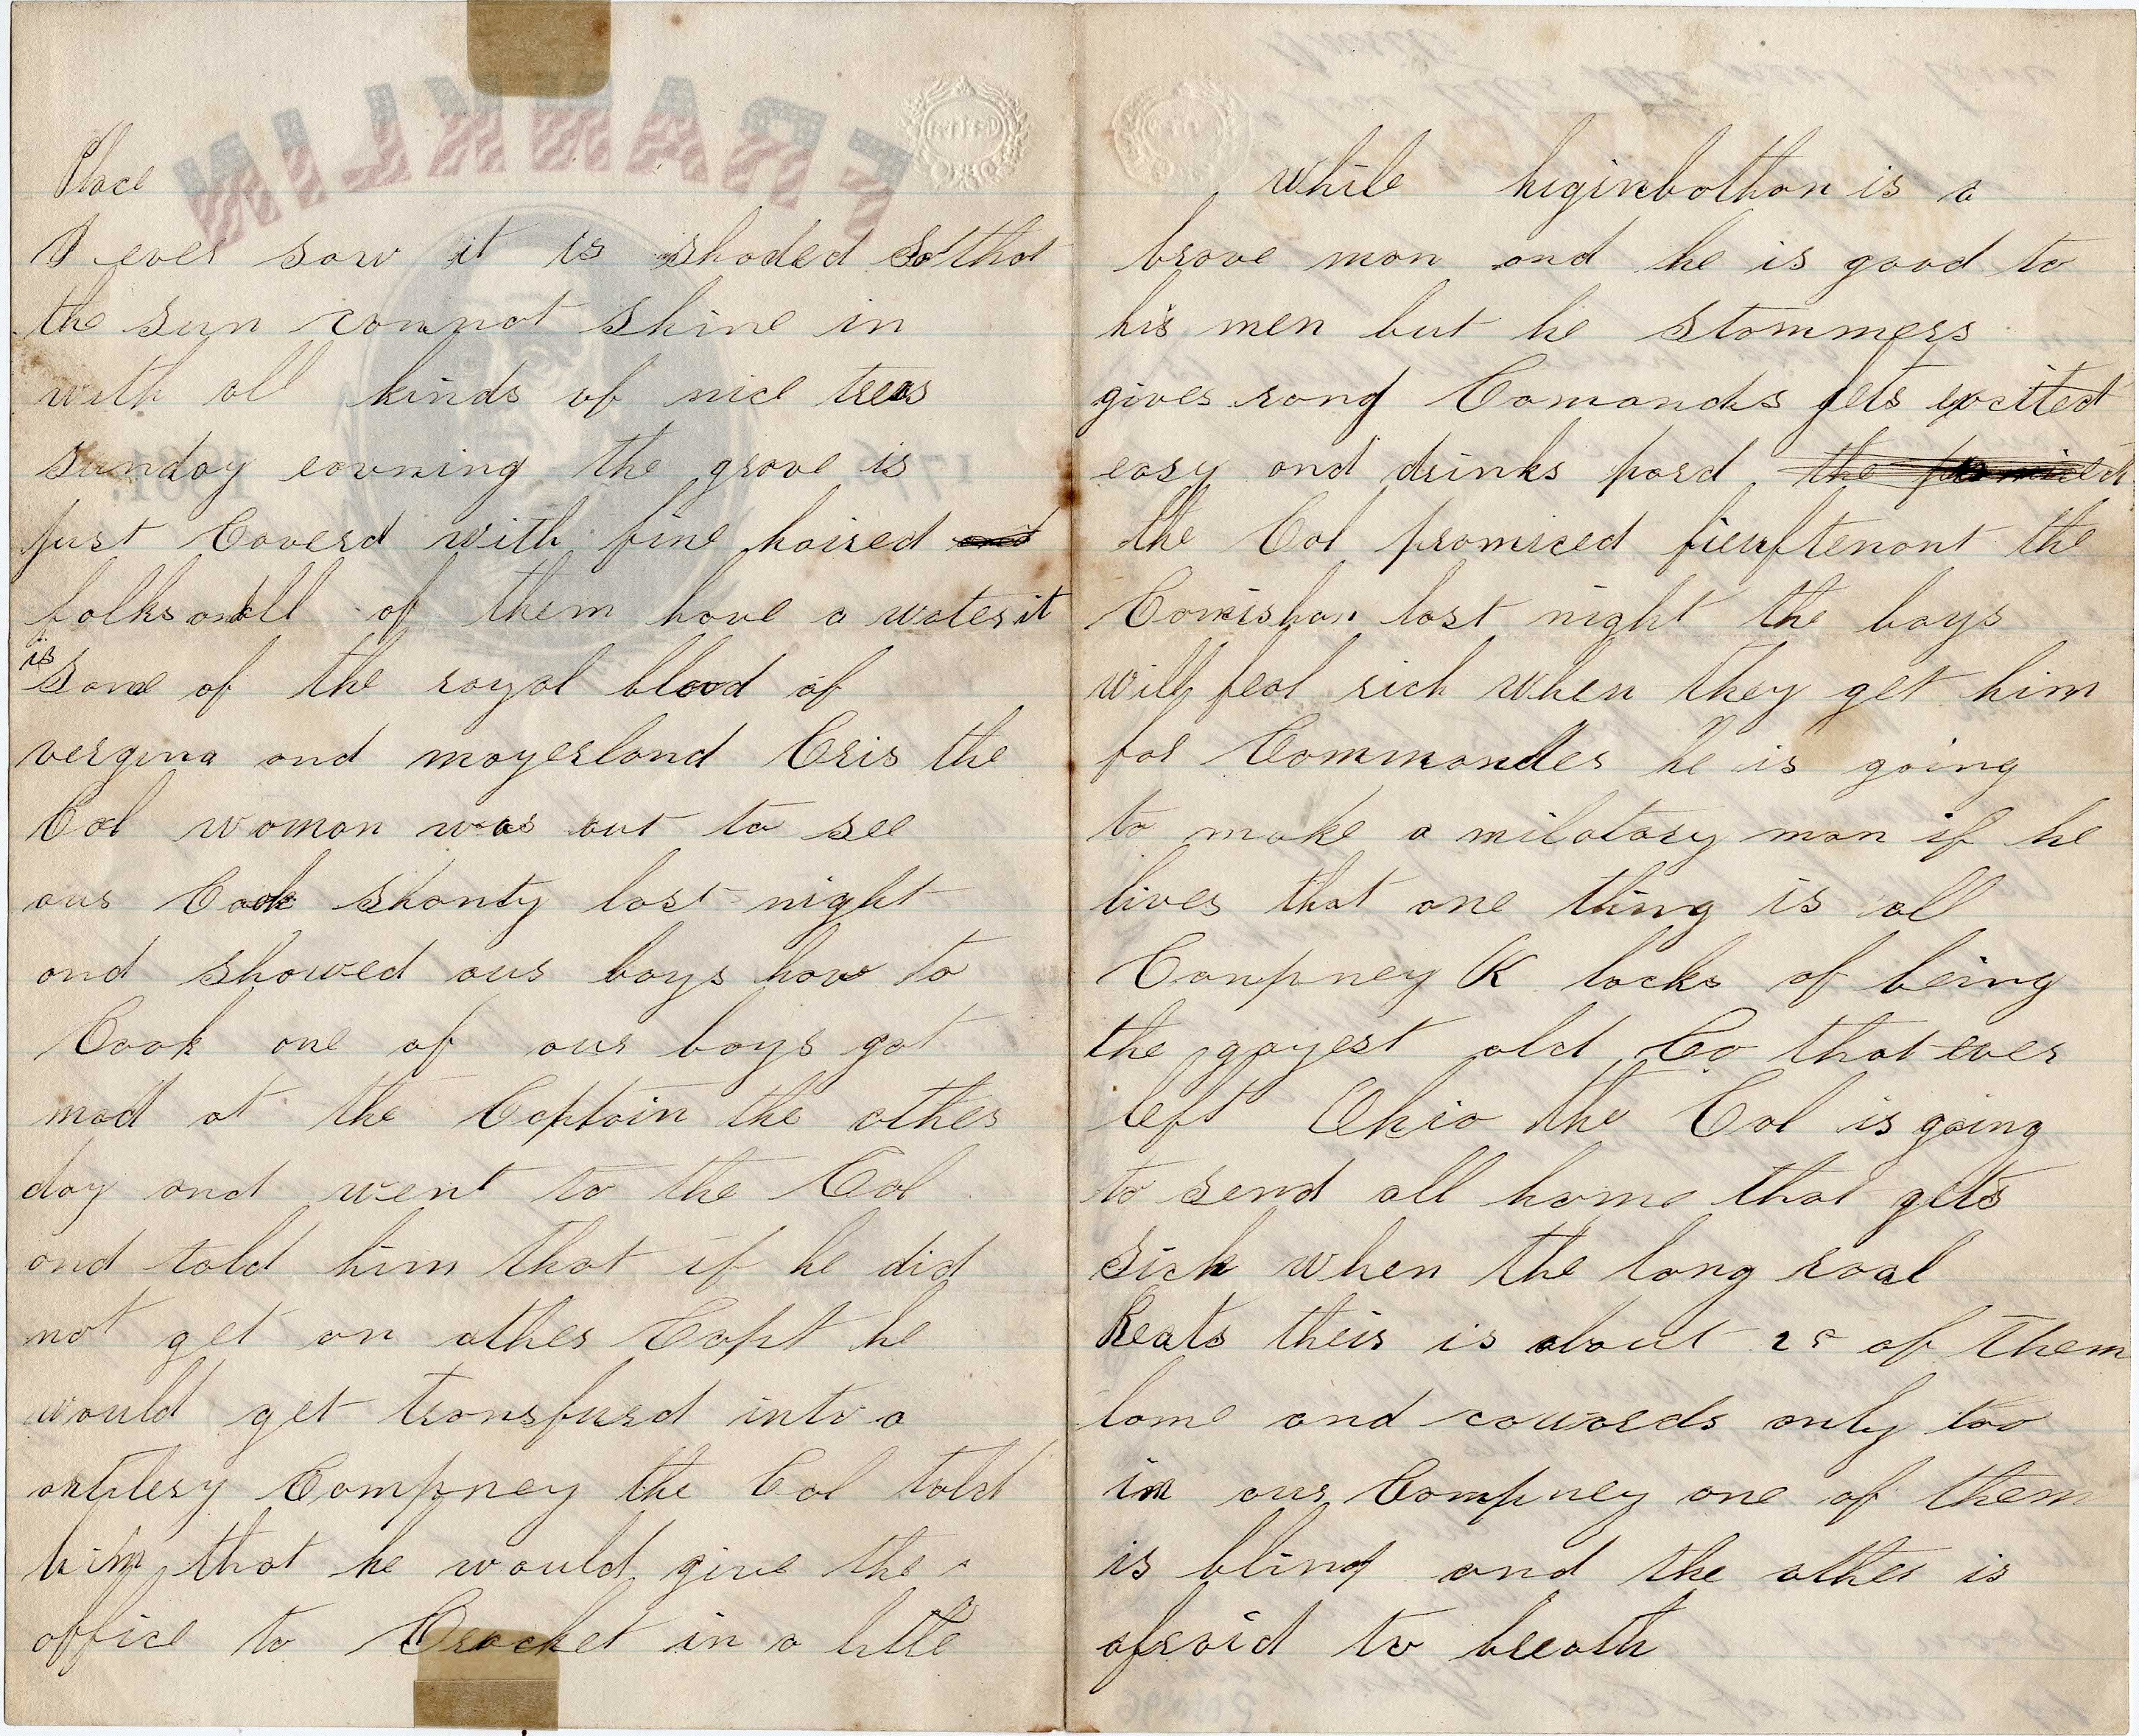 Place
I ever saw it is shaded so that
the sun connot shine in
with all kinds of nice trees
sunday eovning the grove is
just Coverd with fine haired
folks and all of them have a water it
is some of the royal blood of
vergina and mayerland Cris the
Col woman was out to see
our Cook shanty last night
and showed our boys how to
Cook one of our boys got
mad at the Captain the other
day and went to the Col
and told him that if he did
not get an other Capt he
would get transfurd into a
artilery Compney the Col told
him that he would give the
office to Crocket in a litte
while higinbothon is a
brave man and he is good to
his men but he stammers
gives rong Comands gets excited
easy and drinks hard
the Col promiced lieuftenant the
Comishon last night the boys
will feal rich when they get him
for Commander he is going
to make a milatary man if he
lives that one thing is all
Compney K lacks of being
the gayest old Co that ever
left Ohio the Col is going
to send all home that gets
sick when the long roal
Beats their is about of them
lame and cowards only too
in our Compney one of them
is blind and the other is
afraid to breath
FRANKLIN
1861.